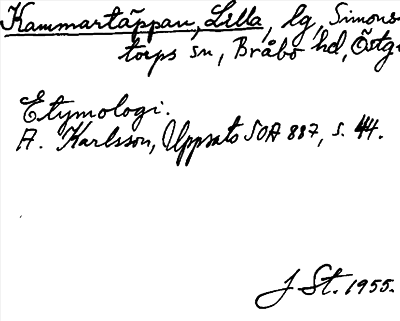 Kammartäppan, Lilla, lg, Simons-
torps sn, Bråbo hd, Östg
Etymologi.
A. Karlsson, Uppsats SOA 887, s. 44.
J St. 1955.